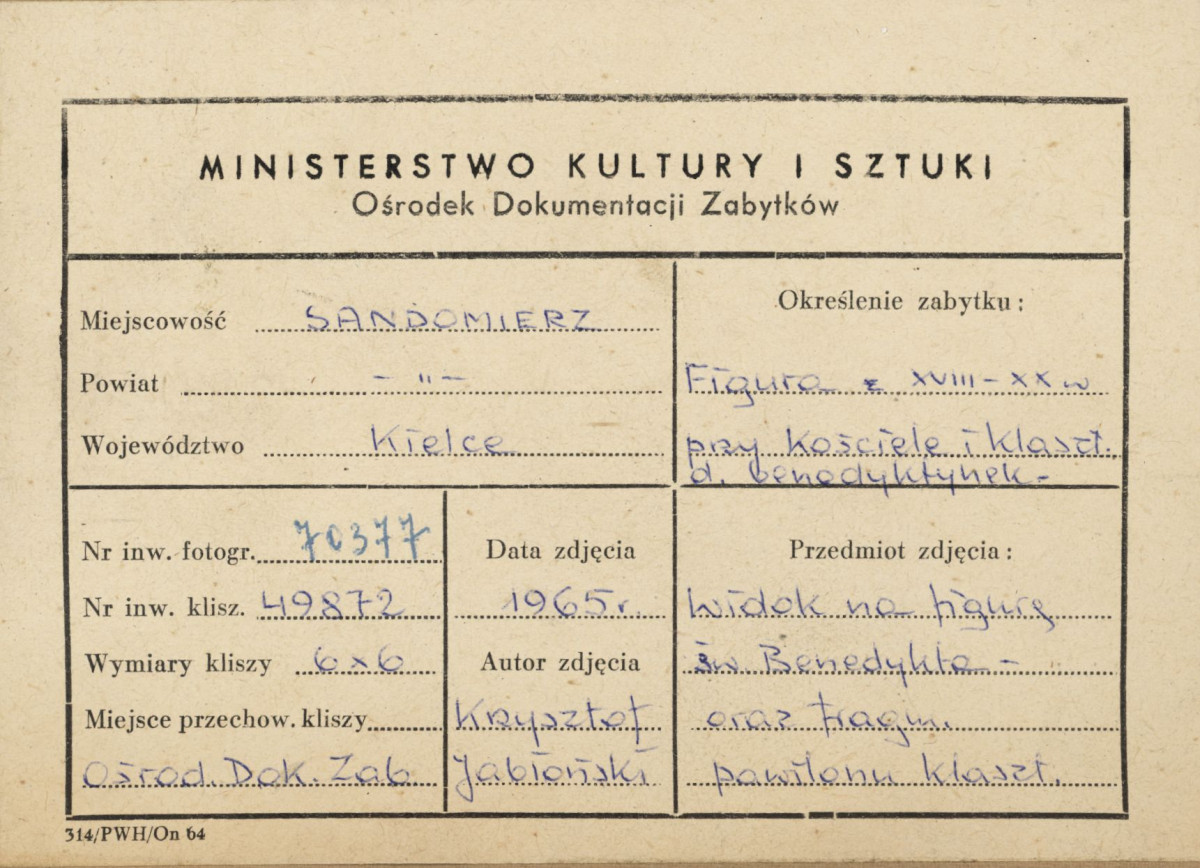 MINISTERSTWO KULTURY I SZTUKI
Ośrodek Dokumentacji Zabytków
Miejscowość SANDOMIERZ
Powiat - " -
Województwo Kielce
Określenie zabytku:
Figura z XVIII-XX w
przy kościele i klaszt.
d. benedyktynek-
Nr inw. fotogr. 70377
Nr inw. klisz. 49872
Wymiary kliszy 6x6
Miejsce przechow. kliszy
Ośrod. Dok. Zab
Data zdjęcia
1965r.
Autor zdjęcia
Krzysztof
Jabłoński
Przedmiot zdjęcia:
Widok na figurę
św. Benedykta -
oraz fragm.
pawilonu klaszt.
314/PWH/On 64